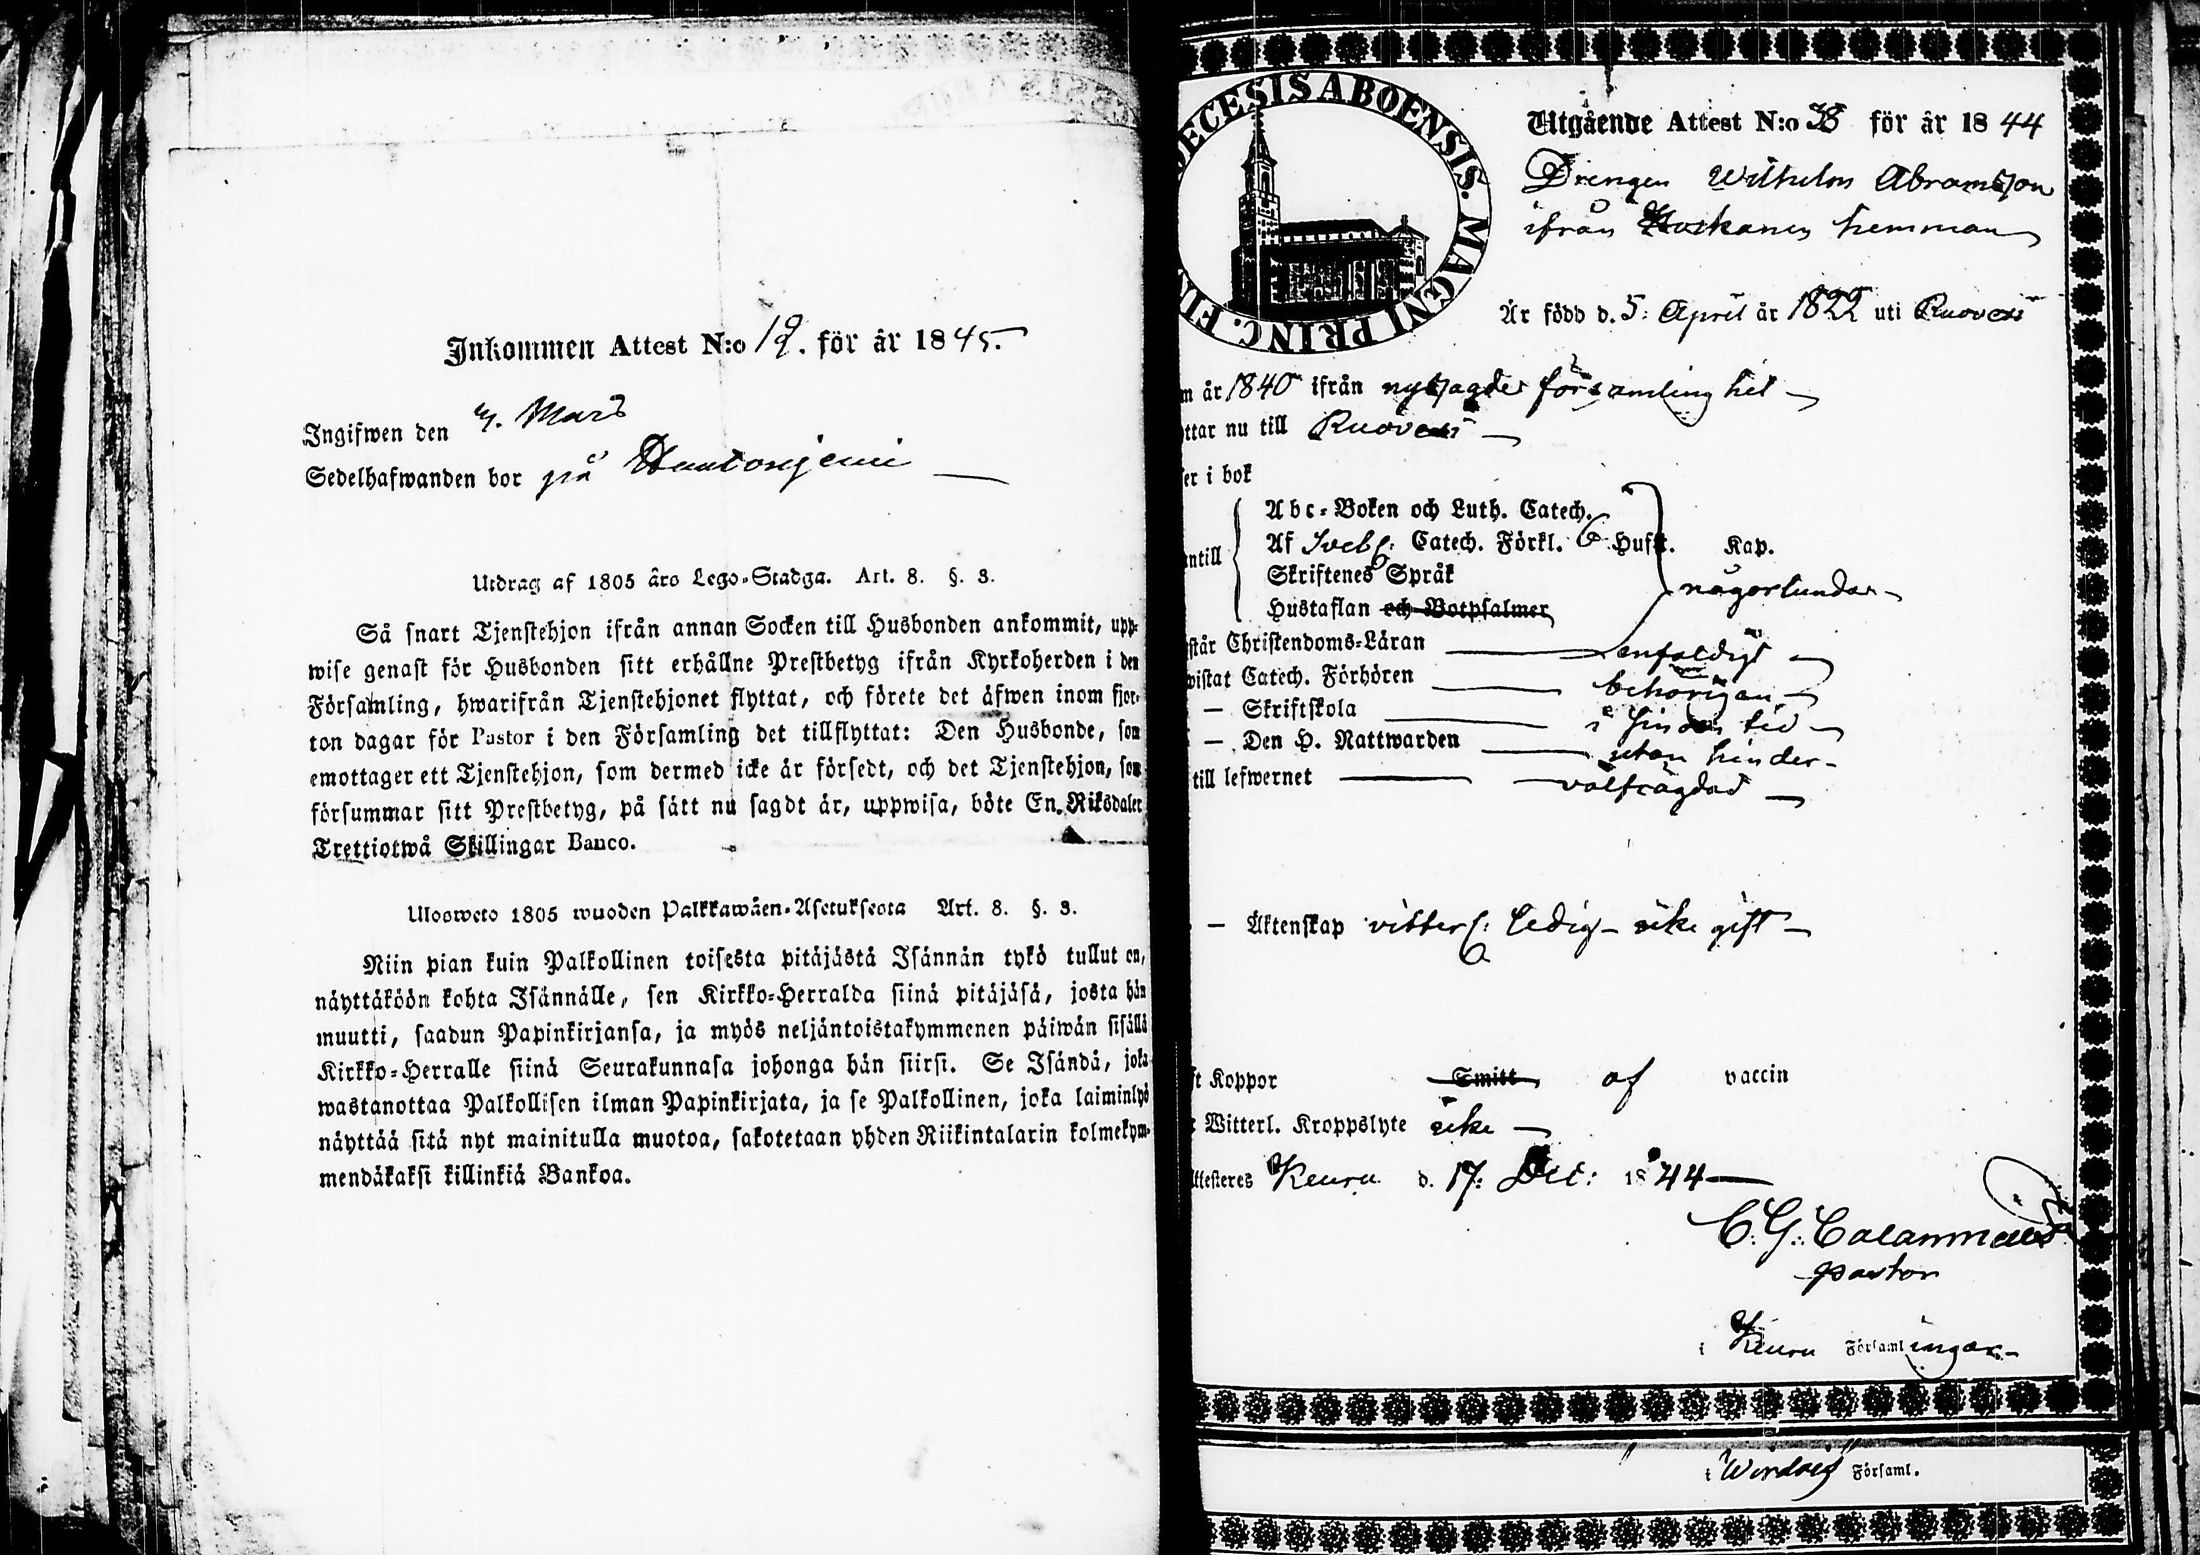 Inkommen Attest N:o 19. för år 1845.
Ingifwen den 7. Mars
Sedelhafwanden bor på
Utdrag af 1805 års Lego-Stadga. Art. 8. §. 3.
Så snart Tjenstehjon ifrån annan Socken till Husbonden ankommit, upp-
wise genast för Husbonden sitt erhållne Prestbetyg ifrån Kyrkoherden i den
Församling, hwarifrån Tjenstehjonet flyttat, och förete det äfwen inom fjor-
ton dagar för Pastor i den Församling det tillflyttat: Den Husbonde, som
emottager ett Tjenstehjon, som dermed icke är försedt, och det Tjenstehjon, som
försummar sitt Prestbetyg, på sätt nu sagdt är, uppwisa, böte En Riksdaler
Trettiotwå Skillingar Banco.
Ulosweto 1805 wuoden Palkkawäen-Asetuksesta Art. 8. §. 3.
Niin pian kuin Palkollinen toisesta pitäjästä Isännän tykö tullut on,
näyttäköön kohta Isännälle, sen Kirkko-Herralda siinä pitäjäsä, josta hän
muutti, saadun Papinkirjansa, ja myös neljäntoistakymmenen päiwän sisällä
Kirkko-Herralle siinä Seurakunnasa johonga hän siirsi. Se Isändä, joka
wastanottaa Palkollisen ilman Papinkirjata, ja se Palkollinen, joka laiminlyö
näyttää sitä nyt mainitulla muotoa, sakotetaan yhden Riikintalarin kolmekym-
mendäkaksi killinkiä Bankoa.
ECESIS ABOENSIS. MAGNI PRINC. FIN
Utgående Attest N:o 38 för år 1844
Drengen Wilhelm Abramsson
ifrån hemman
Är född d. 5: April år 1822 uti Ruovesi
m år 1840 ifrån nysagde församling hit
ttar nu till Ruovesi
er i bok
Abc-Boken och Luth. Catech.
Af Sveb: Catech. Förkl. Husf. Kap.
ntill
Skriftenes Språk
någorlunda
Hustaflan och Botpsalmer
står Christendoms-Läran enfaldigt
wistat Catech. Förhören behörigen
— Skriftskola i sinom tid
— Den H. Nattwarden utan hinder
till lefwernet välfrägdad
— Äktenskap vitterl: ledig – icke gift
ft Koppor Smitt af vaccin
Witterl. Kroppslyte icke
ttesteres Keuru d. 17: Dec: 1844
C. G. Calamnius
Pastor
i Keuru Församlingar
i Wirdois Församl.